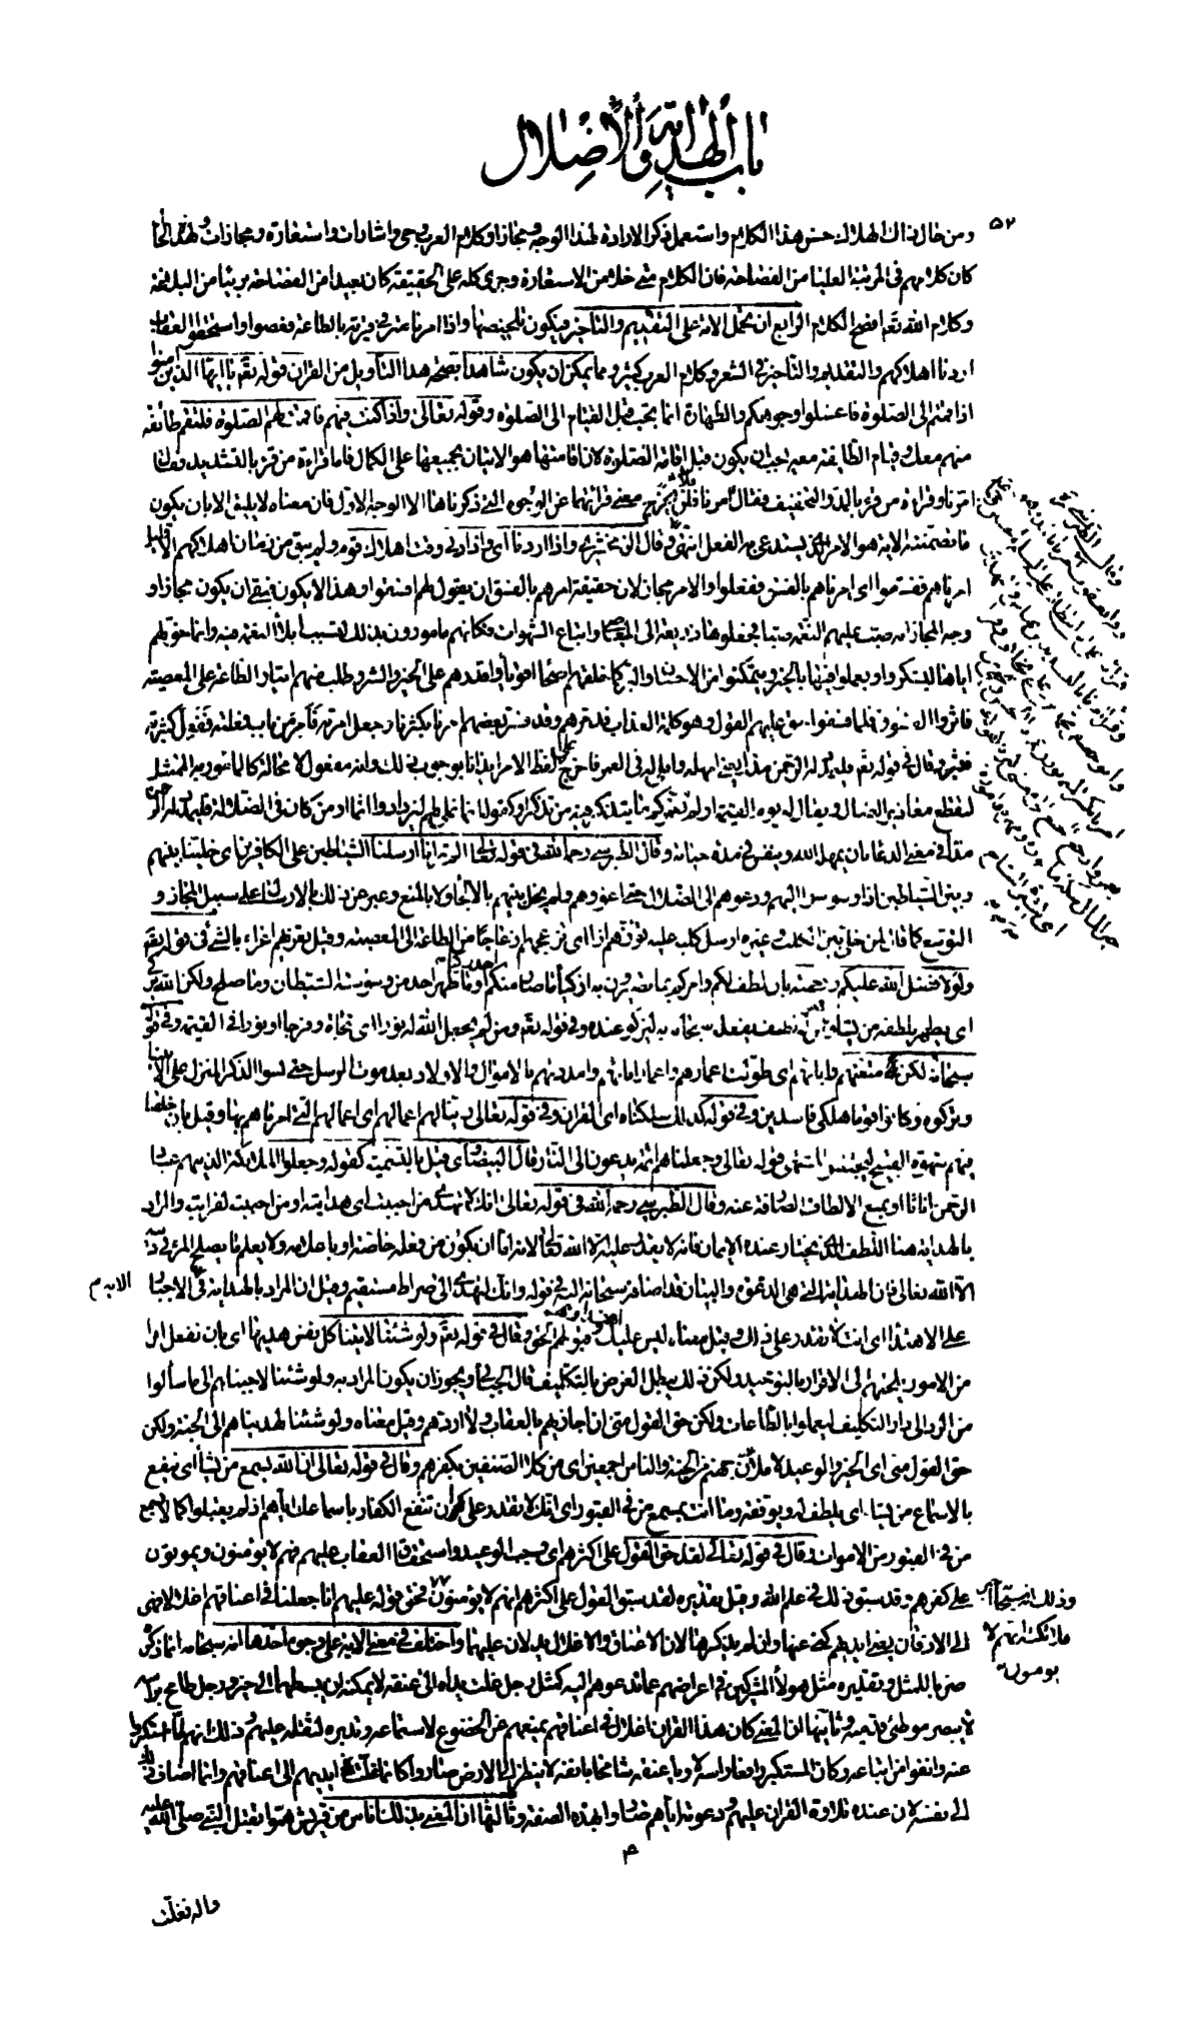 باب الهداية والاضلال
٥٢
ومن خال ذاك الهلاك حسن هذا الكلام واستعمل ذكر الارادة لهذا الوجه مجازا وكلام العرب وحى واشارات واستعارة ومجازات ولهذه الحال
كان كلامهم فى المرتبة العليا من الفصاحة فان الكلام متى خلا من الاستعارة وجرى كله على الحقيقة كان بعيدا من الفصاحة بريئا من البلاغة
وكلام الله تعالى افصح الكلام الرابع ان تحمل الاية على التقديم والتاخير فيكون تلخيصها واذا امرنا مترفى قرية بالطاعة فعصوا واستحقوا العقاب
اردنا اهلاكهم والتقديم والتاخير فى الشعر وكلام العرب كثير ومما يمكن ان يكون شاهدا بصحة هذا التاويل من القران قوله تعالى يا ايها الذين امنوا
اذا قمتم الى الصلوة فاغسلوا وجوهكم والطهارة انما يجب قبل القيام الى الصلوة وقوله تعالى واذا كنت فيهم فاقمت لهم الصلوة فلتقم طائفة
منهم معك وقيام الطائفة معه يجب ان يكون قبل اقامة الصلوة لان اقامتها هو الاتيان بجميعها على الكمال فاما قراءة من قرء بالتشديد فقال
امرنا وقراءة من قرء بالمد والتخفيف فقال آمرنا فلن يخرج معنى قرائتهما عن الوجوه التى ذكرناها الا الوجه الاول فان معناه لا يليق الا بان يكون
ما تضمنته الاية هو الامر الذى يستدعى به الفعل انتهى وقال الزمخشرى واذا اردنا اى واذا دنى وقت اهلاك قوم ولم يبق من زمان اهلاكهم الا قليل
امرناهم ففسقوا اى امرناهم بالفسق ففعلوا والامر مجاز لان حقيقة امرهم بالفسق ان يقول لهم افسقوا وهذا لا يكون فبقى ان يكون مجازا و
وجه المجاز انه صب عليهم النعمة صبا فجعلوها ذريعة الى المعاصى واتباع الشهوات فكانهم مامورون بذلك لتسبب ايلاء النعمة فيه وانما خولهم
اياها ليشكروا ويعملوا فيها بالخير ويتمكنوا من الاحسان والبر كما خلقهم اصحاء اقوياء واقدرهم على الخير والشر وطلب منهم ايثار الطاعة على المعصية
فاثروا الفسوق فلما فسقوا حق عليهم القول وهو كلمة العذاب فدمرهم وقد فسر بعضهم امرنا بكثرنا وجعل امرته فامر من باب فعلته ففعل كثبرته
فثبر وقال فى قوله تعالى فليمدد له الرحمن مدا يعنى امهله واملى له فى العمر فاخرج على لفظ الامر ايذانا بوجوب ذلك وانه مفعول لا محالة كالمامور به الممتثل
ليقطع معاذير الضال ويقال له يوم القيمة اولم نعمركم ما يتذكر فيه من تذكر او كقوله انما نملى لهم ليزدادوا اثما او من كان فى الضلالة فليمدد له الرحمن
مدا فى معنى الدعاء بان يمهله الله وينفس فى مدة حياته وقال الطبرسى رحمه الله فى قوله تعالى الم تر انا ارسلنا الشياطين على الكافرين اى خلينا بينهم
وبين الشياطين اذا وسوس اليهم ودعوهم الى الضلال حتى اغووهم ولم يحل بينهم بالالجاء ولا بالمنع وعبر عن ذلك بالارسال على سبيل المجاز و
التوسع كما يقال لمن خلى بين الكلب وغيره ارسل كلبه عليه تؤزهم ازا اى تزعجهم ازعاجا من الطاعة الى المعصية وقيل تغريهم اغراء بالشىء فى قوله تعالى
ولولا فضل الله عليكم ورحمته بان لطف لكم وامركم بما تصيرون به ازكياء ما صار منكم احد زكيا او ما طهر احد من وسوسة الشيطان وما صلح ولكن الله يزكى
اى يطهر بلطفه من يشاء وفى قوله تعالى ومن لم يجعل الله له نورا اى نجاة وفرجا او نورا فى القيمة وفى قوله
سبحانه لكن متعتهم واباءهم اى طولت اعمارهم واعمار ابائهم وامددتهم بالاموال والاولاد بعد موت الرسل حتى نسوا الذكر المنزل على الانبياء
وتركوه وكانوا قوما هلكى فاسدين وفى قوله كذلك سلكناه اى القران وفى قوله تعالى زينا لهم اعمالهم اى اعمالهم التى امرناهم بها وقيل بان خلقنا
فيهم شهوة القبيح ليجتنبوا المشتهى قوله تعالى وجعلناهم ائمة يدعون الى النار قال البيضاوى قيل بالتسمية كقوله وجعلوا الملائكة الذين هم عباد
الرحمن اناثا او بمنع الالطاف الصارفة عنه وقال الطبرسى رحمه الله فى قوله تعالى انك لا تهدى من احببت اى هدايته او من احببت لقرابته والمراد
بالهداية هنا اللطف الذى يختار عنده الايمان فانه لا يقدر عليه الا الله تعالى لانه اما ان يكون من فعله خاصة او باعلامه ولا يعلم ما يصلح المرء فى دينه
الا الله تعالى فان الهداية التى هى الدعوة والبيان قد اضافه سبحانه اليه فى قوله وانك لتهدى الى صراط مستقيم وقيل ان المراد بالهداية فى الاية الاجبار
على الاهتداء اى انت لا تقدر على ذلك وقيل معناه ليس عليك اهتداؤهم وقبولهم الحق وقال فى قوله تعالى ولو شئنا لاتينا كل نفس هديها اى بان نفعل امرا
من الامور يلجئهم الى الاقرار بالتوحيد ولكن ذلك يبطل الغرض بالتكليف قال الجبائى ويجوز ان يكون المراد به ولو شئنا لاجبناهم الى ما سألوا
من الرد الى دار التكليف ليعملوا بالطاعات ولكن حق القول منى ان اجازيهم بالعقاب ولا اردهم وقيل معناه ولو شئنا لهديناهم الى الجنة ولكن
حق القول منى اى الخبر والوعيد لاملأن جهنم من الجنة والناس اجمعين اى من كلا الصنفين بكفرهم وقال فى قوله تعالى ان الله يسمع من يشاء اى ينفع
بالاسماع من يشاء اى يلطف له ويوفقه وما انت بمسمع من فى القبور اى انك لا تقدر على ان تنفع الكفار باسماعك اياهم اذ لم يقبلوا كما لا تسمع
من فى القبور من الاموات وقال فى قوله تعالى لقد حق القول على اكثرهم اى وجب الوعيد واستحقاق العقاب عليهم فهم لا يؤمنون ويموتون
على كفرهم وقد سبق ذلك فى علم الله وقيل تقديره لقد سبق القول على اكثرهم انهم لا يؤمنون فحق قوله عليهم انا جعلنا فى اعناقهم اغلالا فهى
الى الاذقان يعنى ايديهم كنى عنها وان لم يذكرها لان الاعناق والاغلال يدلان عليها واختلف فى معنى الاية على وجوه احدها انه سبحانه انما ذكره
ضربا للمثل وتقديره مثل هؤلاء المشركين فى اعراضهم عما تدعوهم اليه كمثل رجل غلت يداه الى عنقه لا يمكنه ان يبسطهما الى خير ورجل طامح برأسه
لا يبصر موطئ قدميه وثانيها ان المعنى كان هذا القران اغلال فى اعناقهم يمنعهم عن الخضوع لاستماعه وتدبره لثقله عليهم وذلك انهم لما استكبروا
عنه وانفوا من اتباعه وكان المستكبر رافعا راسه لاويا عنقه شامخا بانفه لا ينظر الى الارض صاروا كانما غلت ايديهم الى اعناقهم وانما اضاف ذلك
الى نفسه لان عند تلاوة القران عليهم ودعوته اياهم صاروا بهذه الصفة وثالثها ان المعنى بذلك ناس من قريش هموا بقتل النبى صلى الله عليه
واله فغلت
الاية م
وذلك انه سبحانه اخبر
ملائكته انهم لا
يومنون